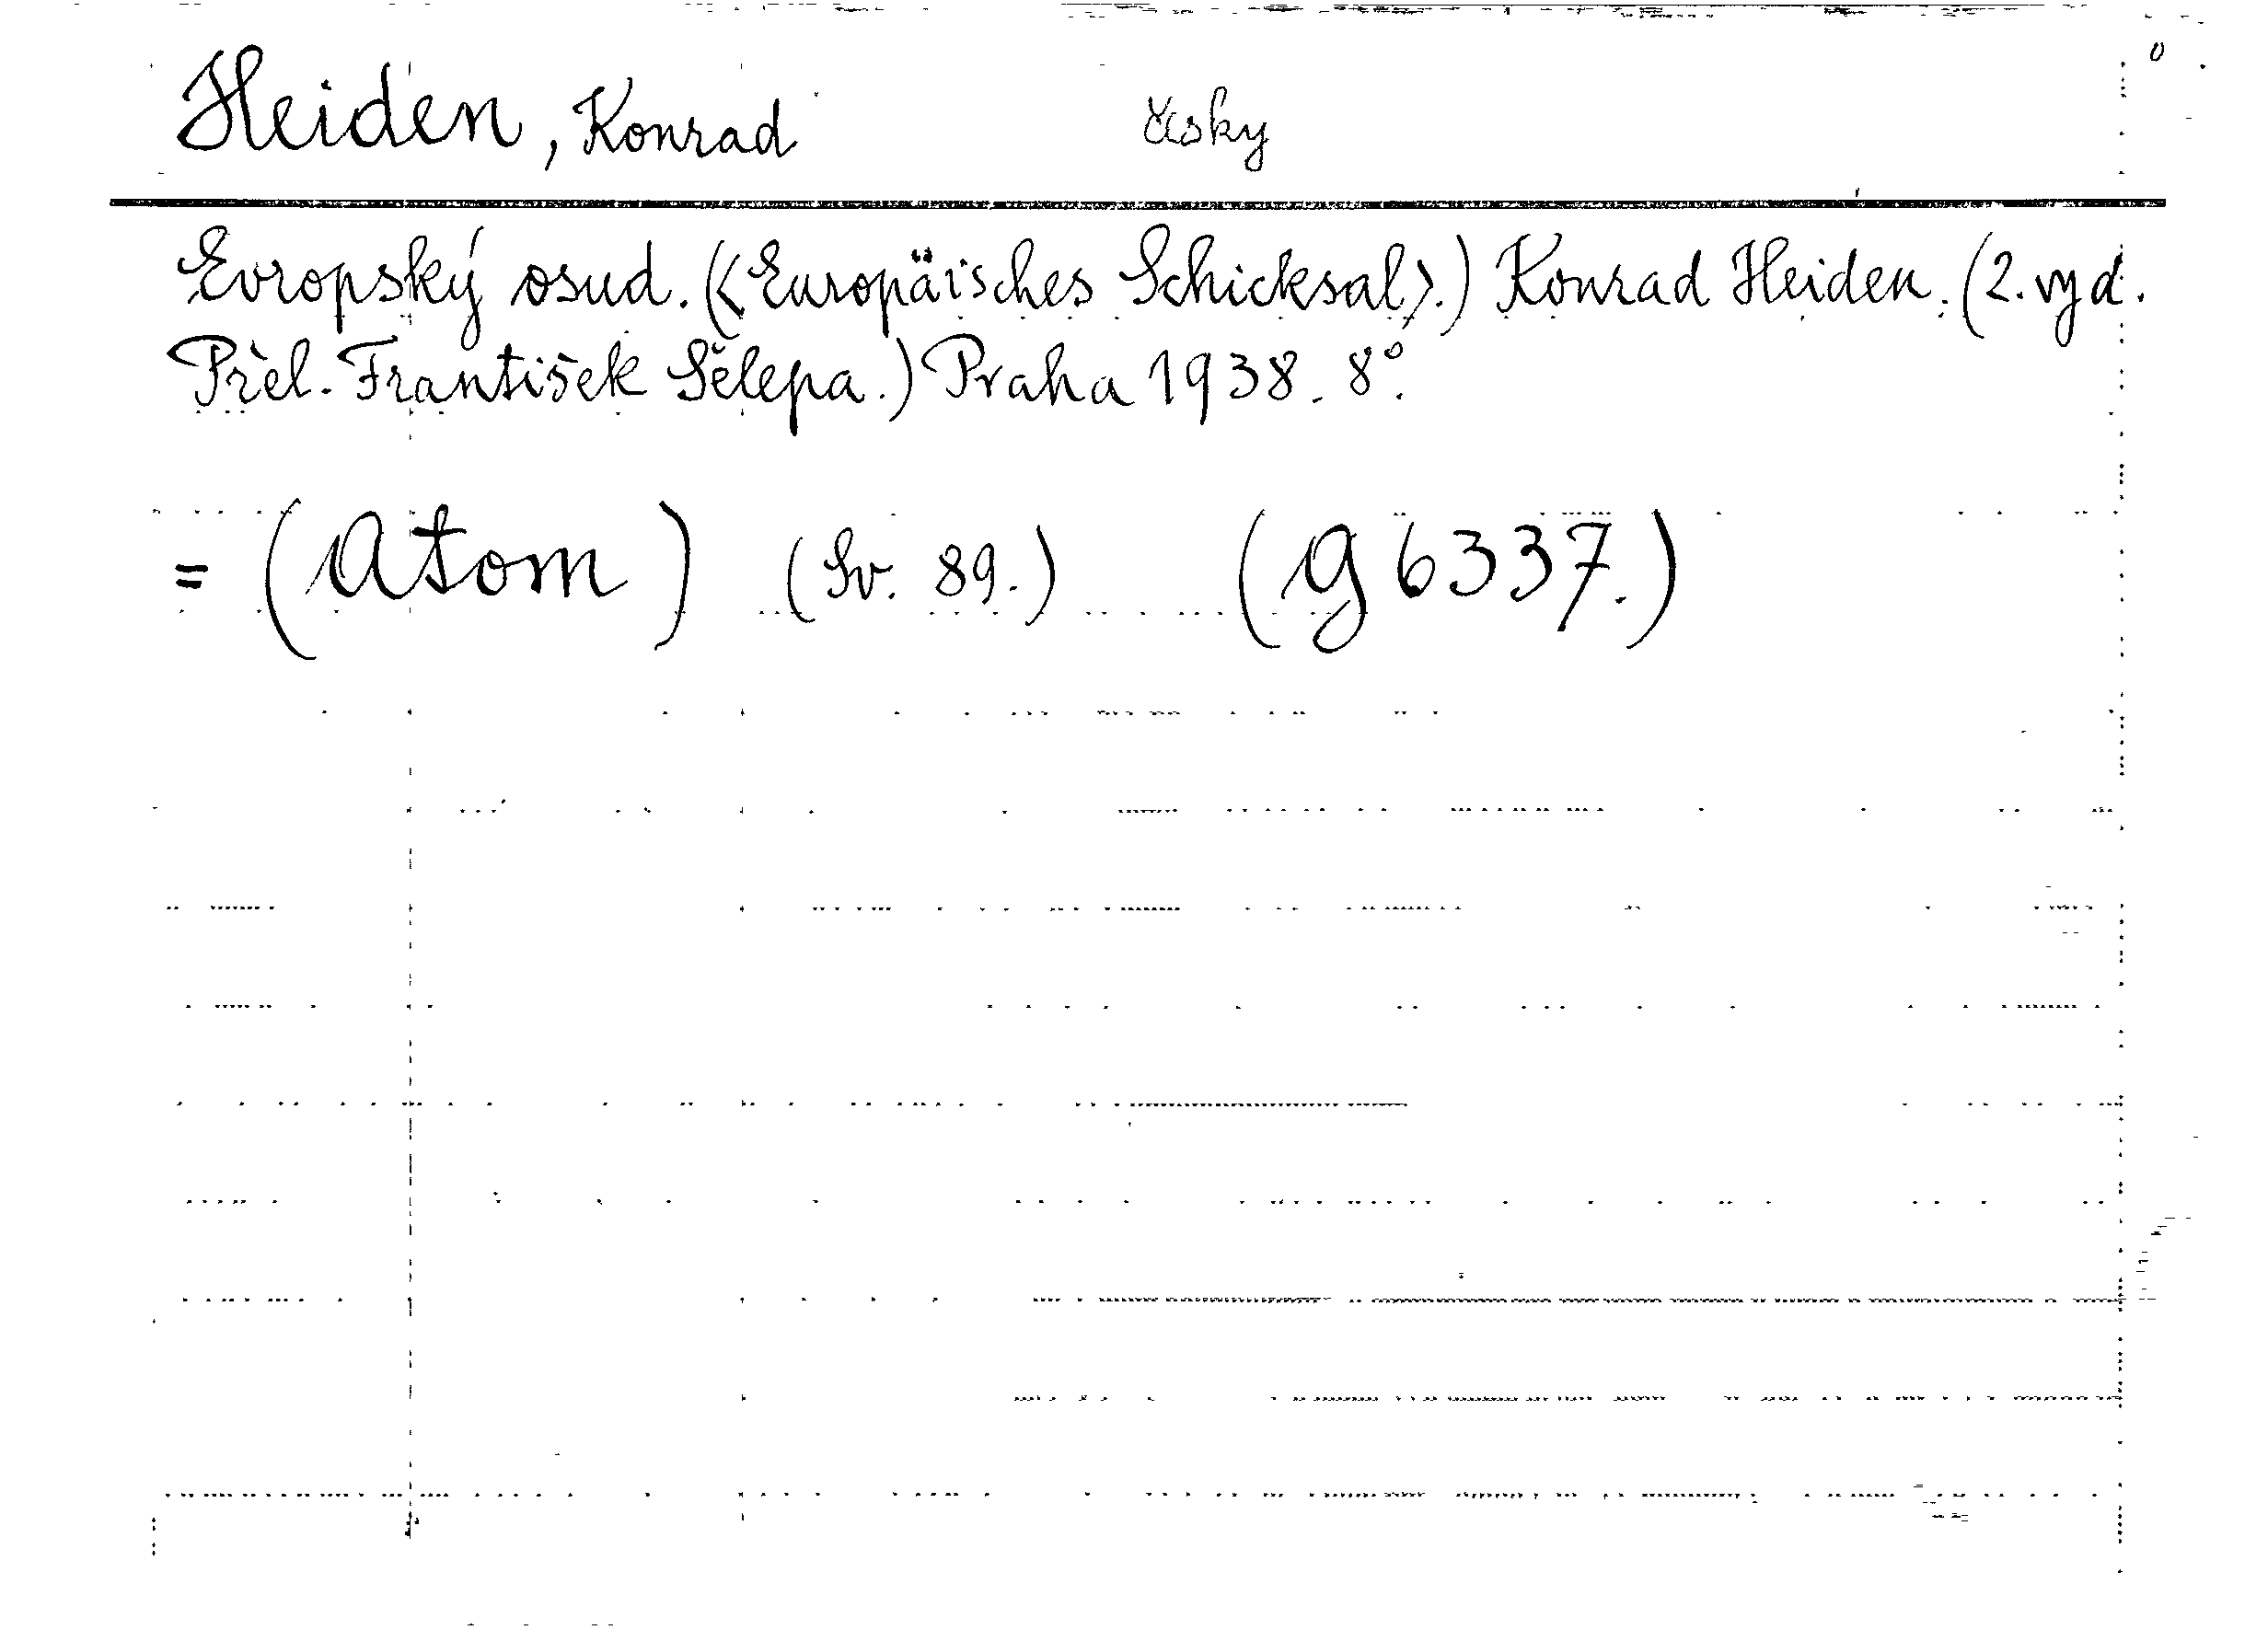 Heiden, Konrad česky
Evropský osud. (<Europäisches Schicksal>.) Konrad Heiden. (2. vyd.
Přel. František Šelepa.) Praha 1938. 8°.
= (Atom) (Sv. 89.) (g 6337.)